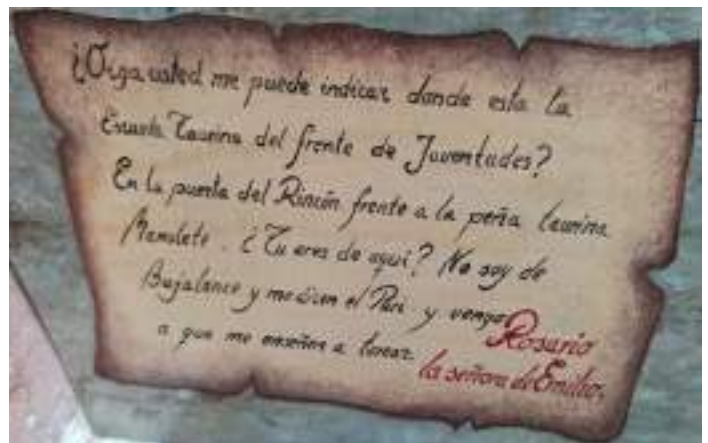 ¿Oiga usted me puede indicar donde esta la
Escuela Taurina del frente de Juventudes?
En la puerta del Rincón frente a la peña taurina
Manolete. ¿Tu eres de aqui? No soy de
Bujalance y me dicen el Puri y vengo
a que me enseñen a torear.
Rosario
la señora de Emilio.